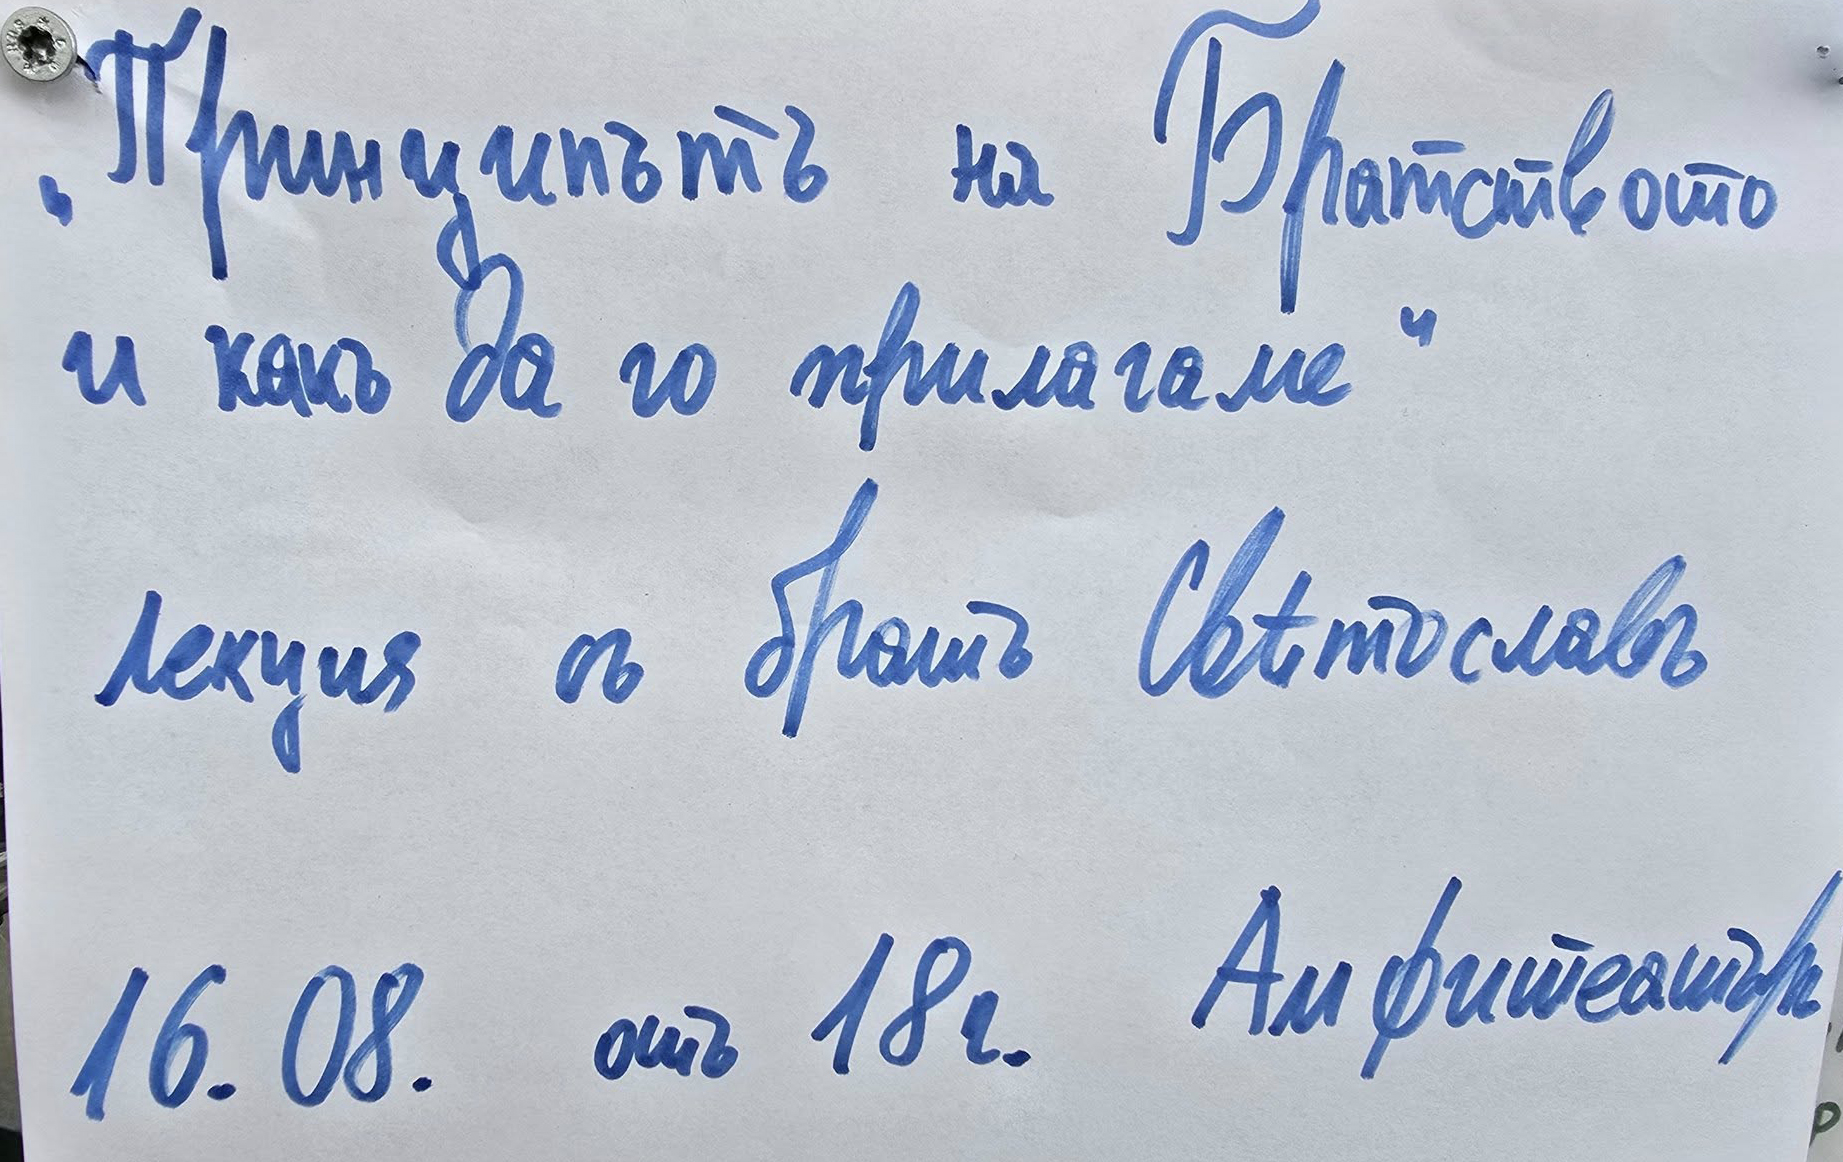 „Принципътъ на Братството
и какъ да го прилагаме“
Лекция съ братъ Свѣтославъ
16.08. отъ 18ч. Амфитеатъръ